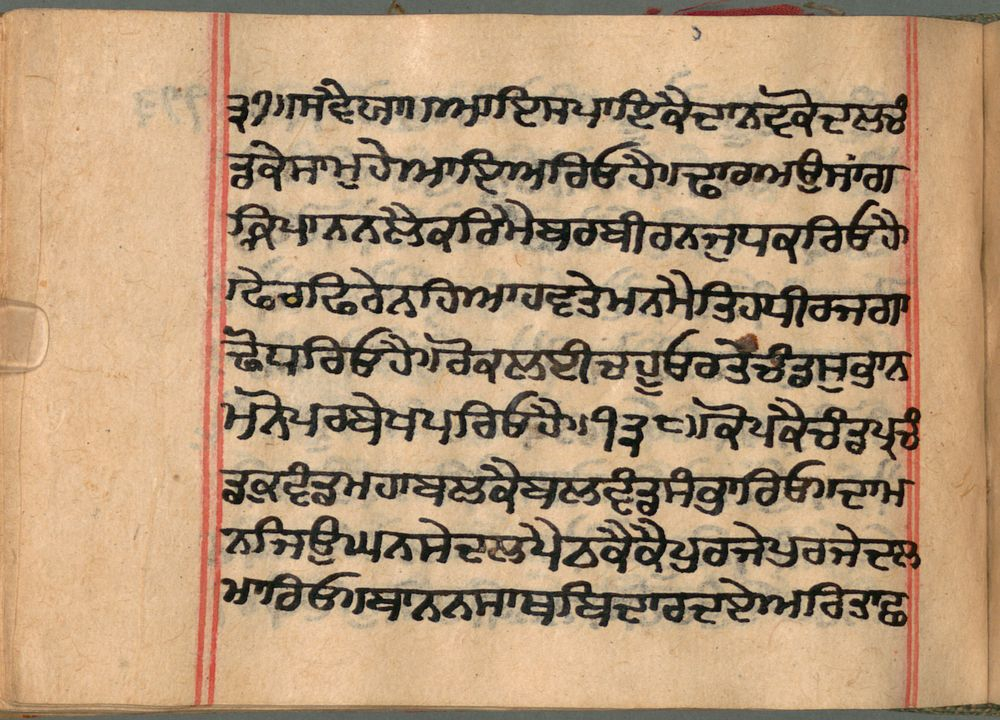 ੩੭॥ਸਵੈਯਾ॥ਆਇਸਪਾਇਕੈਦਾਨਵਕੋਦਲਚੰ
ਡਕੇਸਾਮੁਹੇਆਇਅਰਿਓਹੈ॥ਢਾਰਅਉਸਾਂਗ
ਕ੍ਰਿਪਾਨਨਲੈਕਰਿਮੈਬਰਬੀਰਨਜੁਧਕਰਿਓਹੈ
॥ਫੇਰਫਿਰੇਨਹਿਆਹਵਤੇਮਨਮੈਤਿਹਧੀਰਜਗਾ
ਢੋਧਰਿਓਹੈ॥ਰੋਕਲਈਚਹੂਓਰਤੇਚੰਡਸੁਭਾਨ
ਮਨੋਪਰਬੇਖਪਰਿਓਹੈ॥੧੩੮॥ਕੋਪਕੈਚੰਡਪ੍ਰਚੰ
ਡਕੁਵੰਡਮਹਾਬਲਕੈਬਲਵੰਡਸੰਭਾਰਿਓ॥ਦਾਮ
ਨਜਿਉਘਨਸੇਦਲਪੈਠਕੈਕੈਪੁਰਜੇਪੁਰਜੇਦਲ
ਮਾਰਿਓ॥ਬਾਨਨਸਾਥਬਿਦਾਰਦਏਅਰਿਤਾਛ